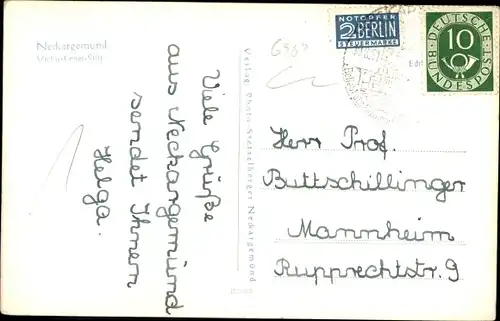 Neckargemünd
Viktor-Lenel-Stift
Viele Grüße
aus Neckargemünd
sendet Ihnen
Helga.
Verlag Photo-Stetzelberger Neckargemünd
NOTOPFER
2 BERLIN
STEUERMARKE
DEUTSCHE
BUNDESPOST
10
Herr Prof.
Buttschillinger
Mannheim
Rupprechtstr. 9